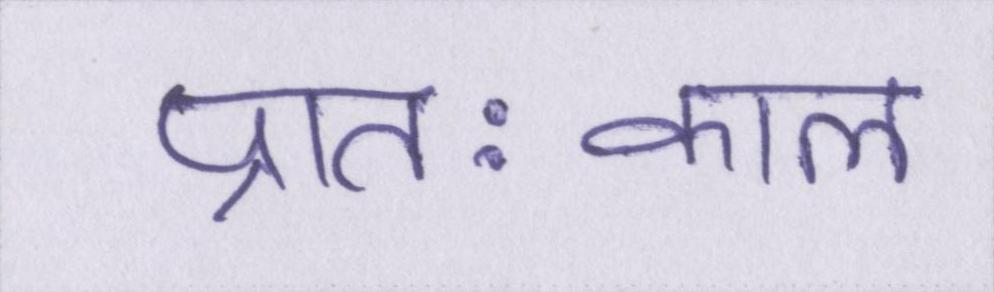 प्रातः काल